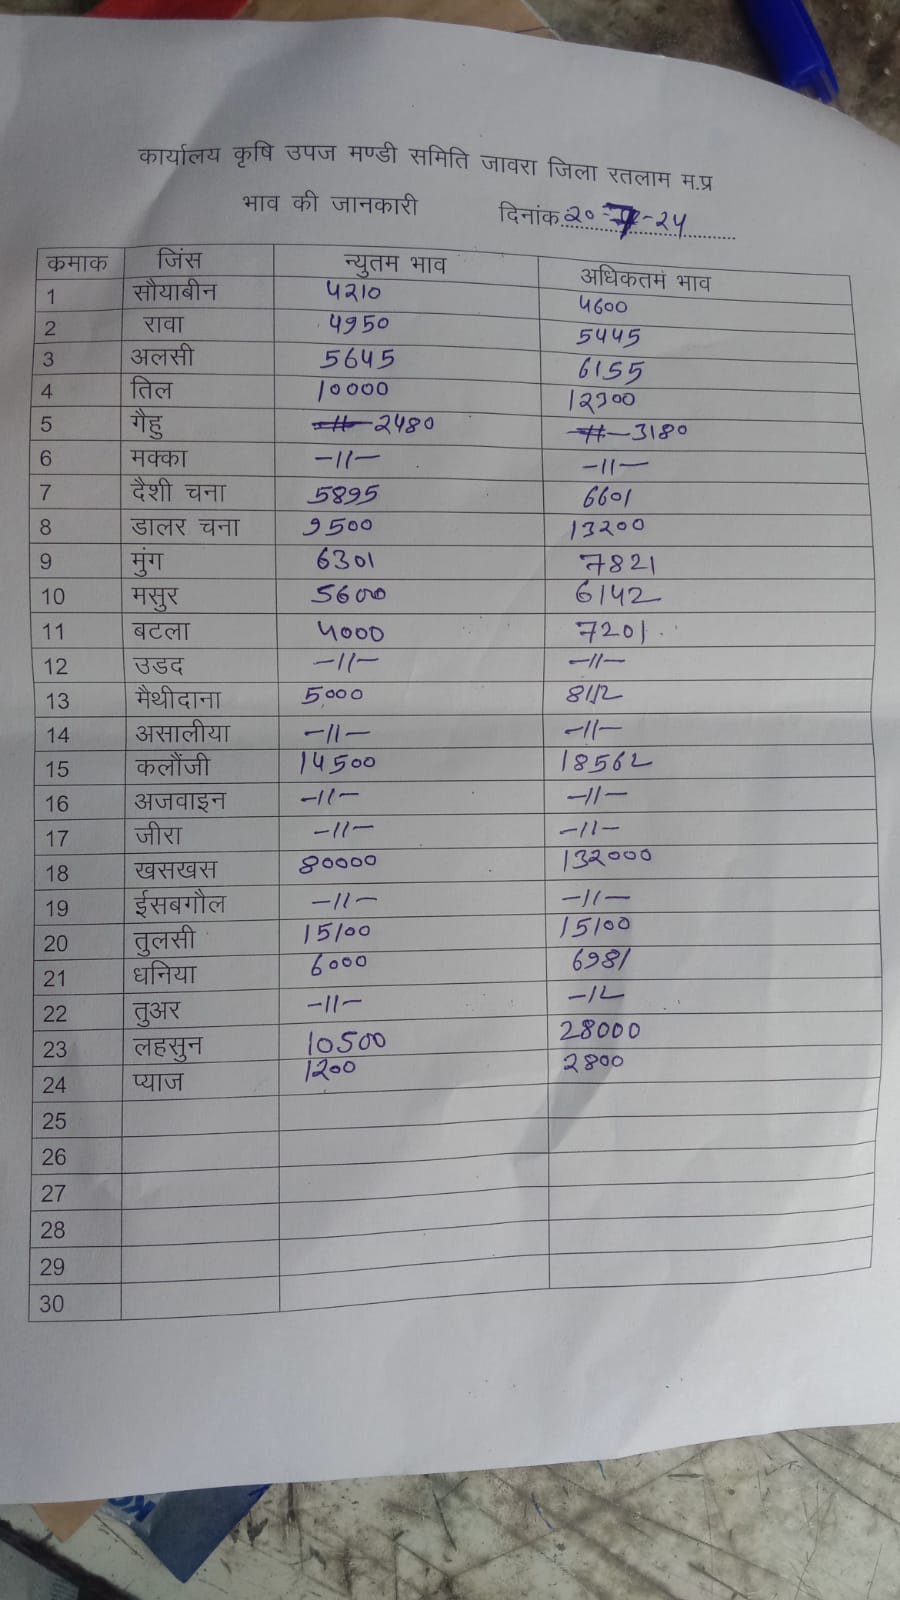 कार्यालय कृषि उपज मण्डी समिति जावरा जिला रतलाम म.प्र
भाव की जानकारी दिनांक 20-7-24
कमाक जिंस न्युतम भाव अधिकतम भाव
1 सौयाबीन 4210 4600
2 रावा 4950 5445
3 अलसी 5645 6155
4 तिल 10000
5 गैहु 2480 3180
6 मक्का -11- -11-
7 दैशी चना 5895 6601
8 डालर चना 9500 13200
9 मुंग 6301 7821
10 मसुर 5600 6142
11 बटला 4000 7201
12 उडद -11- -11-
13 मैथीदाना 5000 8112
14 असालीया -11- -11-
15 कलौंजी 14500 18562
16 अजवाइन -11- -11-
17 जीरा -11- -11-
18 खसखस 80000 132000
19 ईसबगौल -11- -11-
20 तुलसी 15100 15100
21 धनिया 6000 6981
22 तुअर -11- -11-
23 लहसुन 10500 28000
24 प्याज 1200 2800
25
26
27
28
29
30